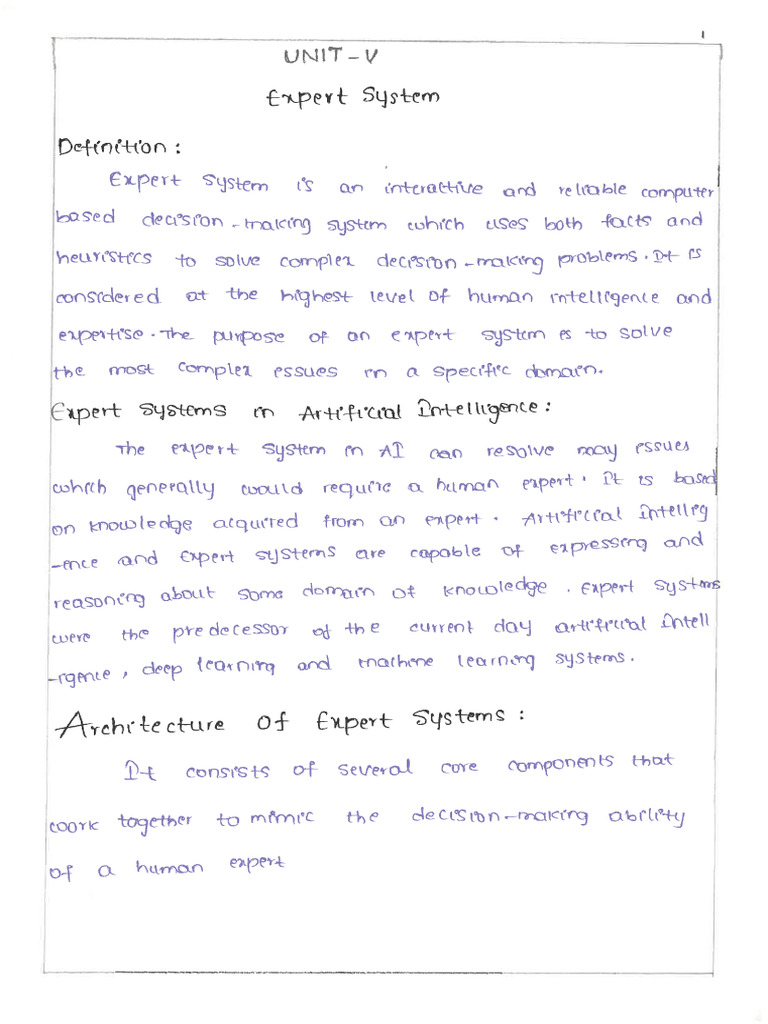 1
UNIT-V
Expert System
Definition:
Expert system is an interactive and reliable computer
based decision-making system which uses both facts and
heuristics to solve complex decision-making problems. It is
considered at the highest level of human intelligence and
expertise. The purpose of an expert system is to solve
the most complex essues in a specific domain.
Expert systems in Artificial Intelligence:
The expert system in AI can resolve may essues
which generally would require a human expert. It is based
on knowledge acquired from an expert. Artificial Intellig
-ence and Expert systems are capable of expressing and
reasoning about some domain of knowledge. Expert systems
were the predecessor of the current day artificial Intell
-igence, deep learning and machine learning systems.
Architecture Of Expert Systems:
It consists of several core components that
work together to mimic the decision-making ability
of a human expert